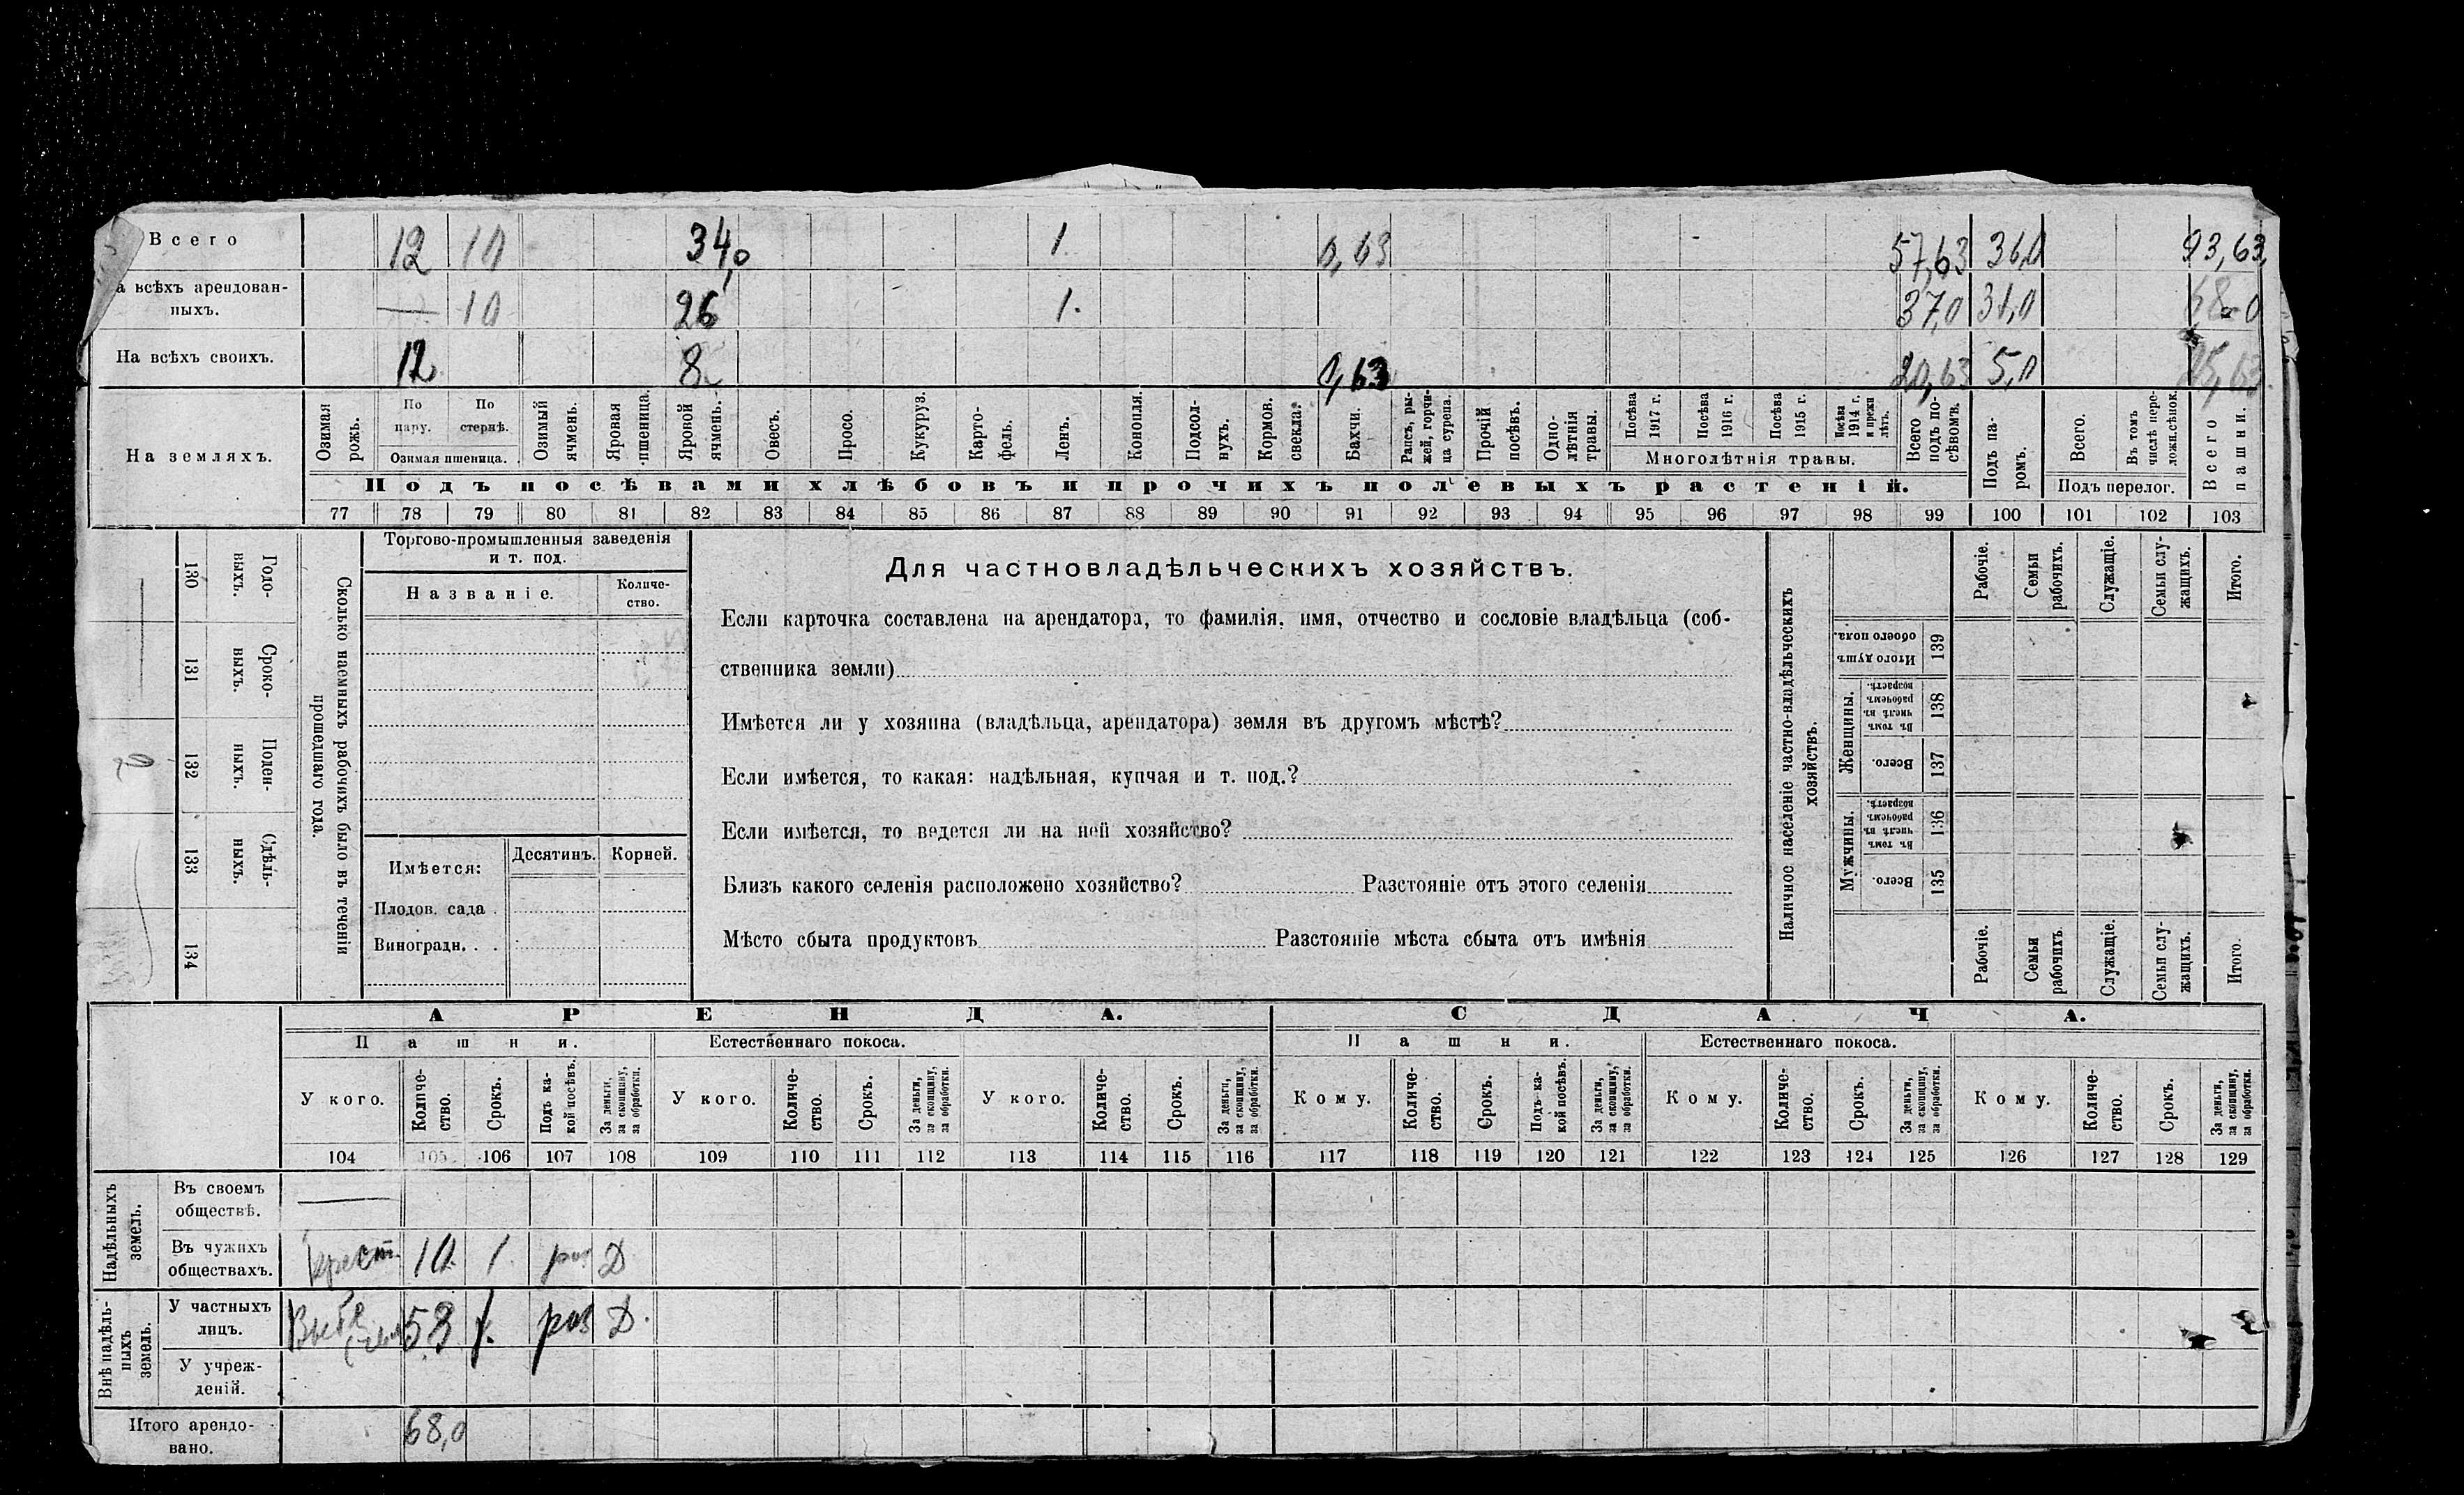 Всего 12 10 34,0 1. 0,63 57,63 36,0 93,63
а всѣхъ арендован-
ныхъ. — 10 26 1. 37,0 31,0 68-0
На всѣхъ своихъ. 12 8 0,63 20,63 5,0 25,63
На земляхъ.
Озимая рожь.
По пару.
По стернѣ.
Озимая пшеница.
Озимый ячмень.
Яровая пшеница.
Яровой ячмень.
Овесъ.
Просо.
Кукуруз.
Карто-
фель.
Ленъ.
Конопля.
Подсол-
нухъ.
Кормов. свекла.
Бахчи.
Рапсъ, ры-
жей, горчи-
ца сурепа.
Прочій посѣвъ.
Одно-
лѣтнія травы.
Посѣва 1917 г.
Посѣва 1916 г.
Посѣва 1915 г.
Посѣва 1914 г. и прежн лѣтъ.
Многолѣтнія травы.
Всего подъ по-
сѣвомъ.
Подъ па-
ромъ.
Всего.
Въ томъ числѣ пере-
ложн.сѣнок.
Подъ перелог.
Всего пашни.
Подъ посѣвами хлѣбовъ и прочихъ полевыхъ растеній.
77 78 79 80 81 82 83 84 85 86 87 88 89 90 91 92 93 94 95 96 97 98 99 100 101 102 103
Годо-
выхъ.
130
Сроко-
выхъ.
131
Поден-
ныхъ.
132
Сдѣль-
ныхъ.
133
134
Сколько наемныхъ рабочихъ было въ теченіи
прошедшаго года.
Торгово-промышленныя заведенія
и т. под.
Названіе.
Количе-
ство.
Имѣется:
Десятинъ.
Корней.
Плодов. сада .
Виноградн. . .
Для частновладѣльческихъ хозяйствъ.
Если карточка составлена на арендатора, то фамилія, имя, отчество и сословіе владѣльца (соб-
ственника земли)
Имѣется ли у хозяина (владѣльца, арендатора) земля въ другомъ мѣстѣ?
Если имѣется, то какая: надѣльная, купчая и т. под.?
Если имѣется, то ведется ли на ней хозяйство?
Близъ какого селенія расположено хозяйство? Разстояніе отъ этого селенія
Мѣсто сбыта продуктовъ Разстояніе мѣста сбыта отъ имѣнія
Наличное населеніе частно-владѣльческихъ
хозяйствъ.
Рабочіе.
Семьи рабочихъ.
Служащіе.
Семьи слу-
жащихъ.
Итого.
Итого душъ обоего пола.
139
Женщины.
Въ томъ числѣ въ рабочемъ возрастѣ.
138
Всего.
137
Мужчины.
Въ томъ числѣ въ рабочемъ возрастѣ.
136
Всего.
135
Рабочіе.
Семьи рабочихъ.
Служащіе.
Семьи слу-
жащихъ.
Итого.
АРЕНДА.
СДАЧА.
Пашни.
Естественнаго покоса.
Пашни.
Естественнаго покоса.
У кого.
Количе-
ство.
Срокъ.
Подъ ка-
кой посѣвъ.
За деньги,
за скопщину,
за обработки.
У кого.
Количе-
ство.
Срокъ.
За деньги,
за скопщину,
за обработки.
У кого.
Количе-
ство.
Срокъ.
За деньги,
за скопщину,
за обработки.
Кому.
Количе-
ство.
Срокъ.
Подъ ка-
кой посѣвъ.
За деньги,
за скопщину,
за обработки.
Кому.
Количе-
ство.
Срокъ.
За деньги,
за скопщину,
за обработки.
Кому.
Количе-
ство.
Срокъ.
За деньги,
за скопщину,
за обработки.
104 105 106 107 108 109 110 111 112 113 114 115 116 117 118 119 120 121 122 123 124 125 126 127 128 129
Надѣльныхъ
земель.
Въ своемъ
обществѣ.
—
Въ чужихъ
обществахъ.
Крест. 10. 1. раз Д
Внѣ надѣль-
ныхъ
земель.
У частныхъ
лицъ.
58 1. раз Д.
У учреж-
деній.
Итого арендо-
вано.
68,0